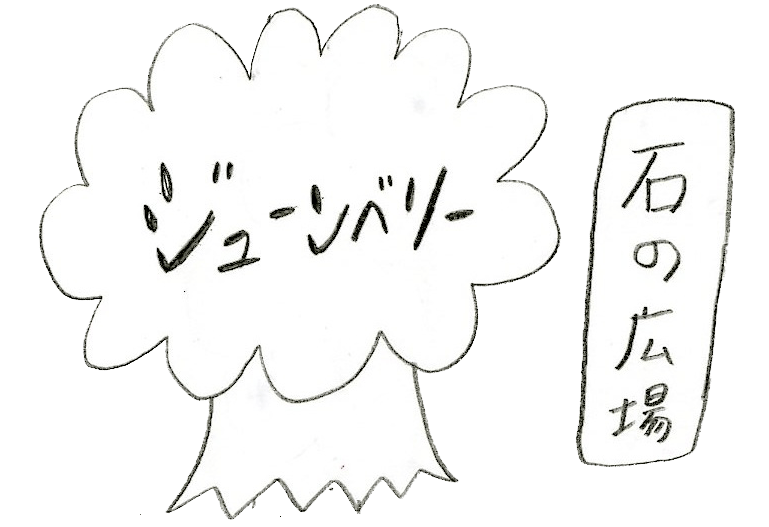 ジューンベリー
石の広場